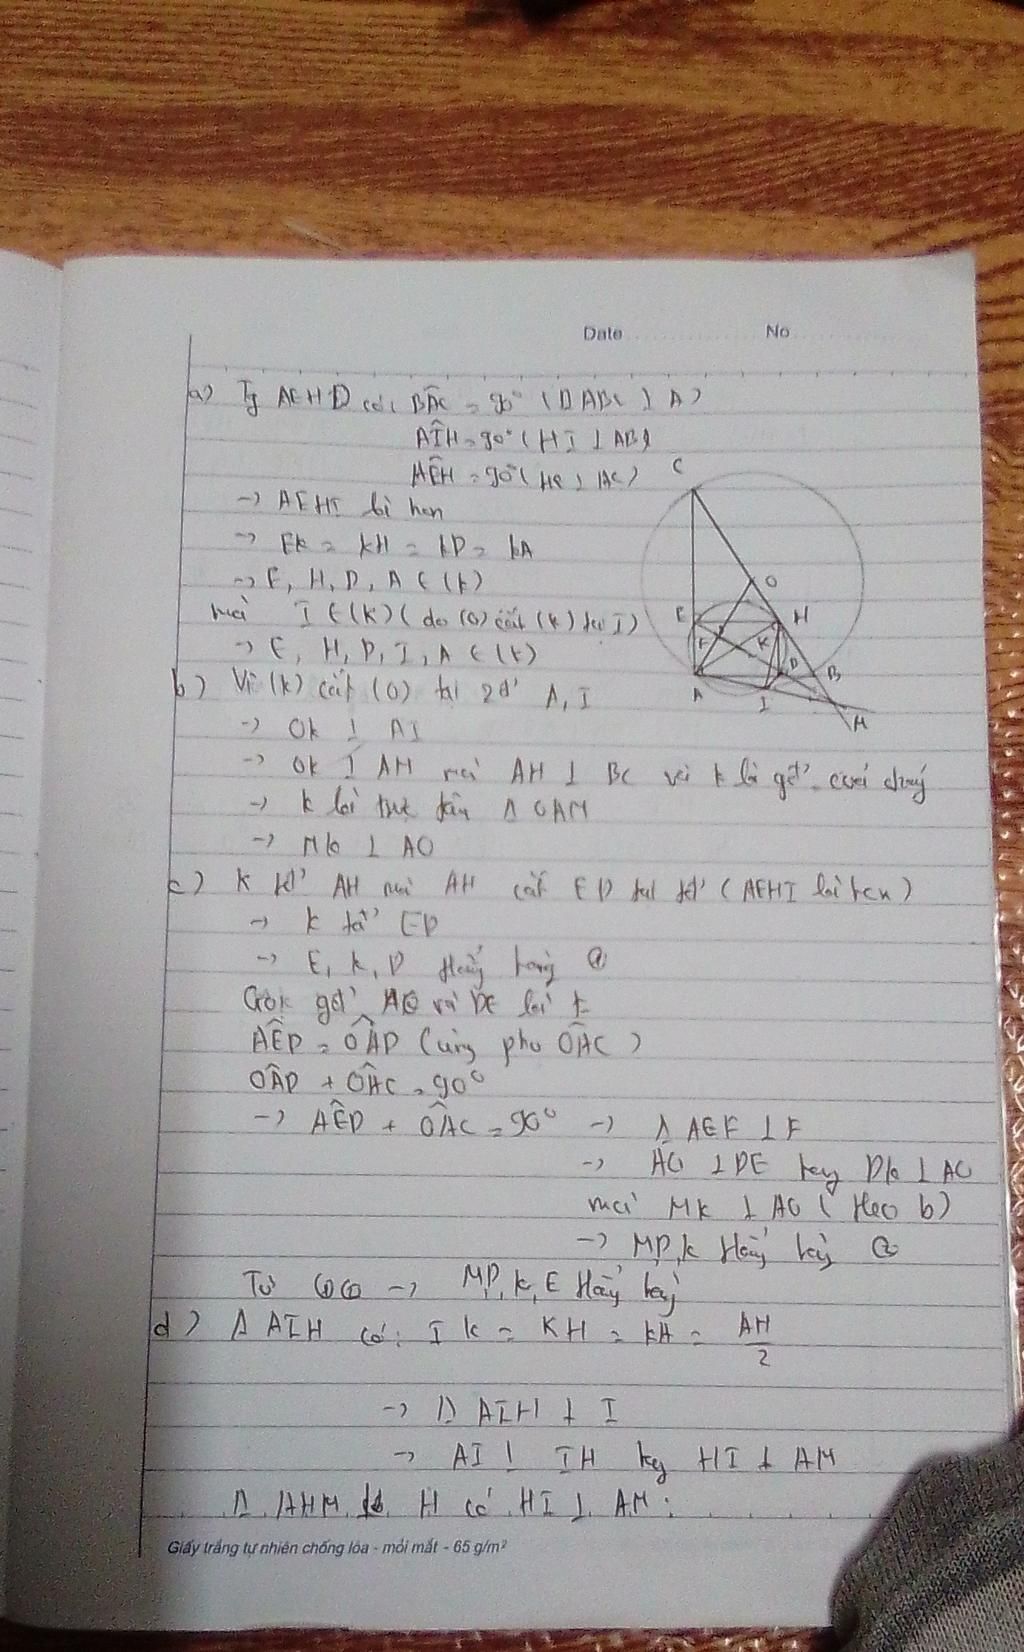 Date No
a) Tg AEHD có: BÂC = 90° (∆ ABC ⊥ A)
AÎH = 90° (HI ⊥ AB)
AÊH = 90° (HE ⊥ AC)
→ AEHI là hcn
→ EK = KH = KD = KA
→ E, H, D, A ∈ (K)
mà I ∈ (K) (do (O) cắt (K) tại I)
→ E, H, D, I, A ∈ (K)
b) Vì (K) cắt (O) tại 2đ' A, I
→ OK ⊥ AI
→ OK ⊥ AM mà AH ⊥ BC và K là gđ'
→ K là trực tâm ∆ OAM
→ MK ⊥ AO
c) K tđ' AH mà AH cắt ED tại tđ' (AEHI là hcn)
→ K tđ' ED
→ E, K, D thẳng hàng ①
Gọi gđ' AO và DE là F
AÊD = OÂD (cùng phụ OÂC)
OÂD + OÂC = 90°
→ AÊD + OÂC = 90° → ∆ AEF ⊥ F
→ AO ⊥ DE hay DK ⊥ AO
mà MK ⊥ AO (theo b)
→ M,D,K thẳng hàng ②
Từ ①② → M,D,K,E thẳng hàng
d) ∆ AIH có: IK = KH = KA = AH/2
→ ∆ AIH ⊥ I
→ AI ⊥ IH hay HI ⊥ AM
∆ AHM H có HI ⊥ AM:
C
O
E
H
F
K
D
B
A
I
M
Giấy trắng tự nhiên chống lóa - mỏi mắt - 65 g/m²